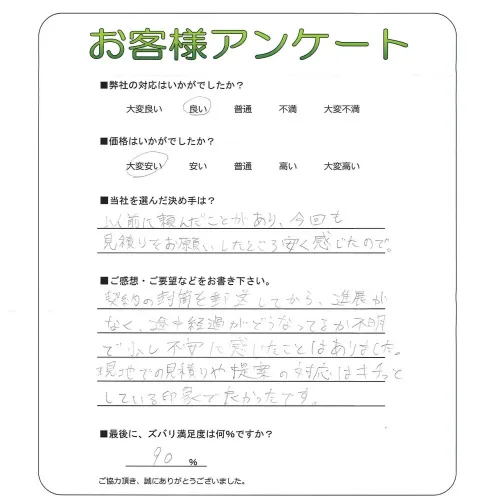 お客様アンケート
■弊社の対応はいかがでしたか？
大変良い 良い 普通 不満 大変不満
■価格はいかがでしたか？
大変安い 安い 普通 高い 大変高い
■当社を選んだ決め手は？
以前に頼んだことがあり、今回も
見積りをお願いしたところ安く感じたので。
■ご感想・ご要望などをお書き下さい。
契約の封筒を郵送してから、進展が
なく、途中経過がどうなってるか不明
で少し不安に感じたことはありました。
現地での見積りや提案の対応はキチッと
している印象で良かったです。
■最後に、ズバリ満足度は何％ですか？
90 %
ご協力頂き、誠にありがとうございました。